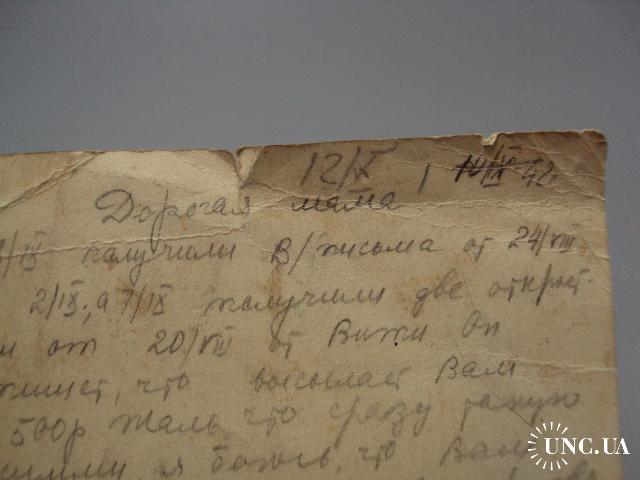 12/X 10/IX 42
Дорогая мама!
/IX получили В/письма от 24/VIII
2/IX; а 7/IX получили две открыт-
и от 20/VIII от Вити Он
пишет, что высылает Вам
500р жаль что сразу такую
сумму, я боюсь, что Вам
UNC.UA